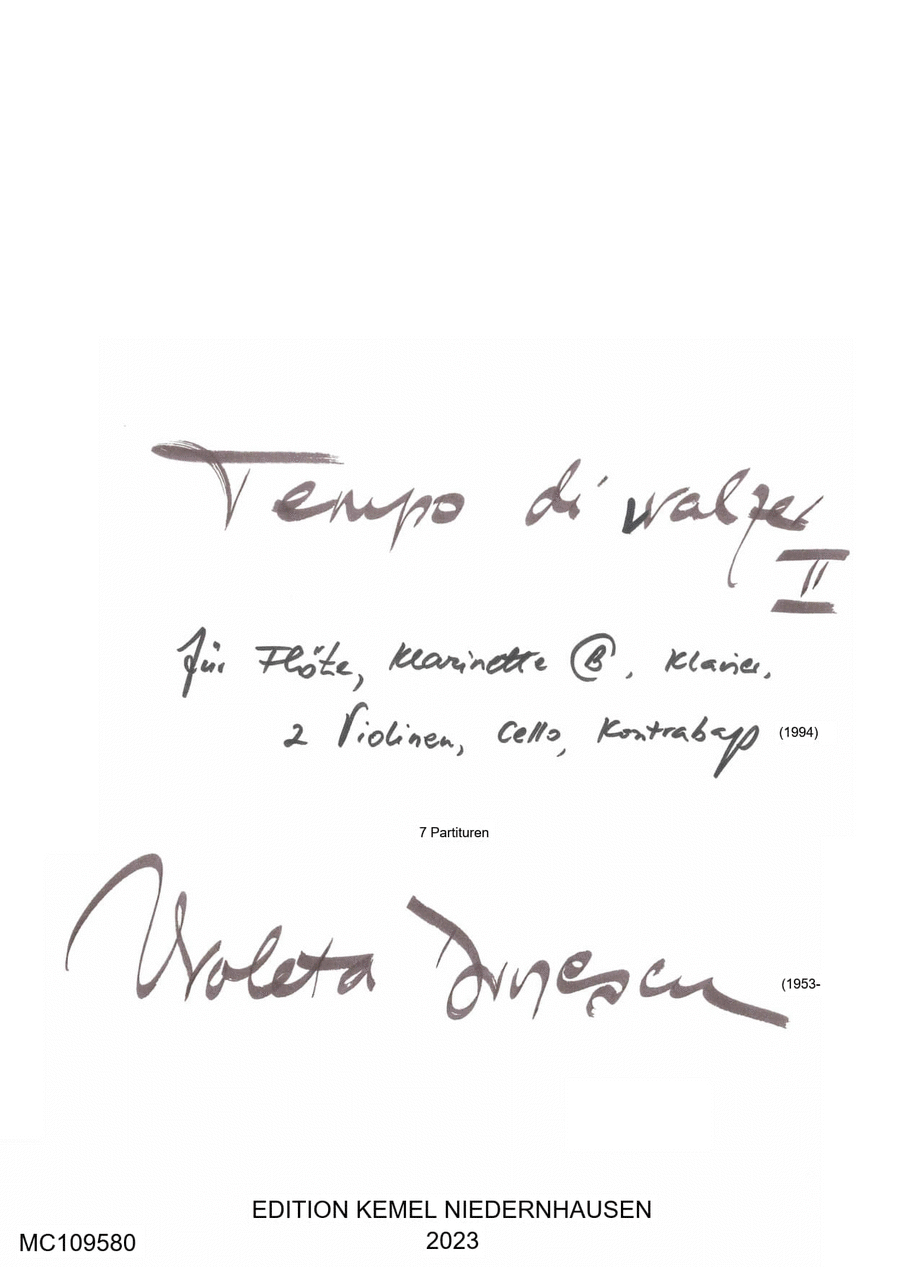 Tempo di walzer
II
für Flöte, Klarinette Ⓑ, Klavier,
2 Violinen, Cello, Kontrabaß (1994)
7 Partituren
Violeta Dinescu (1953-
EDITION KEMEL NIEDERNHAUSEN
2023
MC109580